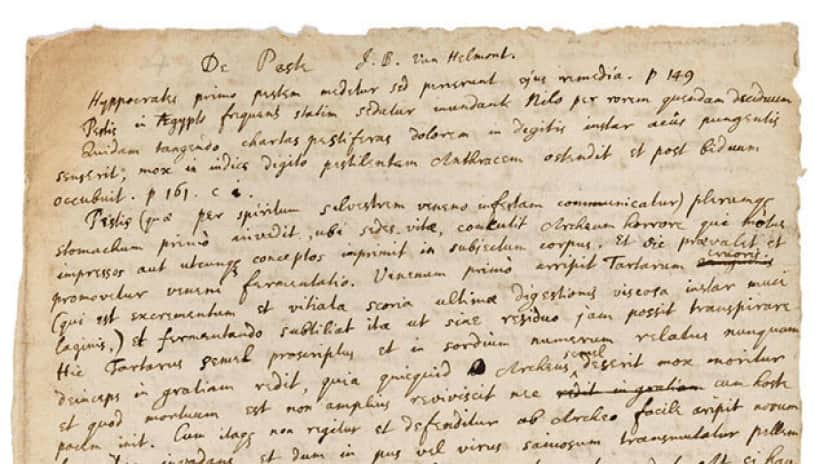 De Peste J. B. Van Helmont.
Hyppocrates primo pestem medetur sed perierunt ejus remedia. p 149
Pestis in Ægypto frequens statim sedatur inundante Nilo per rorem quendam deciduum
Quidam tangendo chartas pestiferas dolorem in digitis instar acûs pungentis
senserit; mox in indice digito pestilentem Anthracem ostendit et post biduum
occubuit. p 161. c
Pestis (quæ per spiritum silvestrem veneno infestam communicatur) plerumqꝫ
stomachum primò invadit, ubi sedes vitæ, conculit Archeum horrore qui motus
impressos aut utcunqꝫ conceptos imprimit in subjectum corpus. Et sic prævalet et
promovetur veneni fermentatio. Venenum primò arripit Tartarum cruoris
(qui est excrementum et vitiata scoria ultimæ digestionis viscosa instar muci
laginis,) et fermentando subtiliat ita ut sine residuo jam possit transpirare
Hic Tartarus semel proscriptus et in sordium numerum relatus nunquam
deinceps in gratiam redit, quia quicquid Archeus semel deserit mox moritur
et quod mortuum est non amplius reviviscit nec redit in gratiam cum hoste
pacem init. Cum itaqꝫ non regitur et defenditur ab Archeo facile aripit novum
invadens et dum in pus vel virus saniosum transmutatur pellem